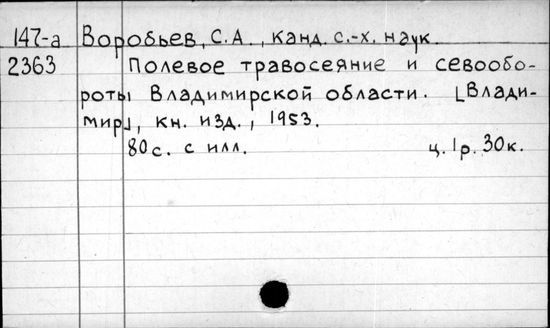 147-а Воробьев, С.А., канд. с.-х. наук
2363 Полевое травосеяние и севообо-
роты Владимирской области. [Влади-
мир], кн. изд., 1953.
80 с. с илл. ц. 1 р. 30 к.